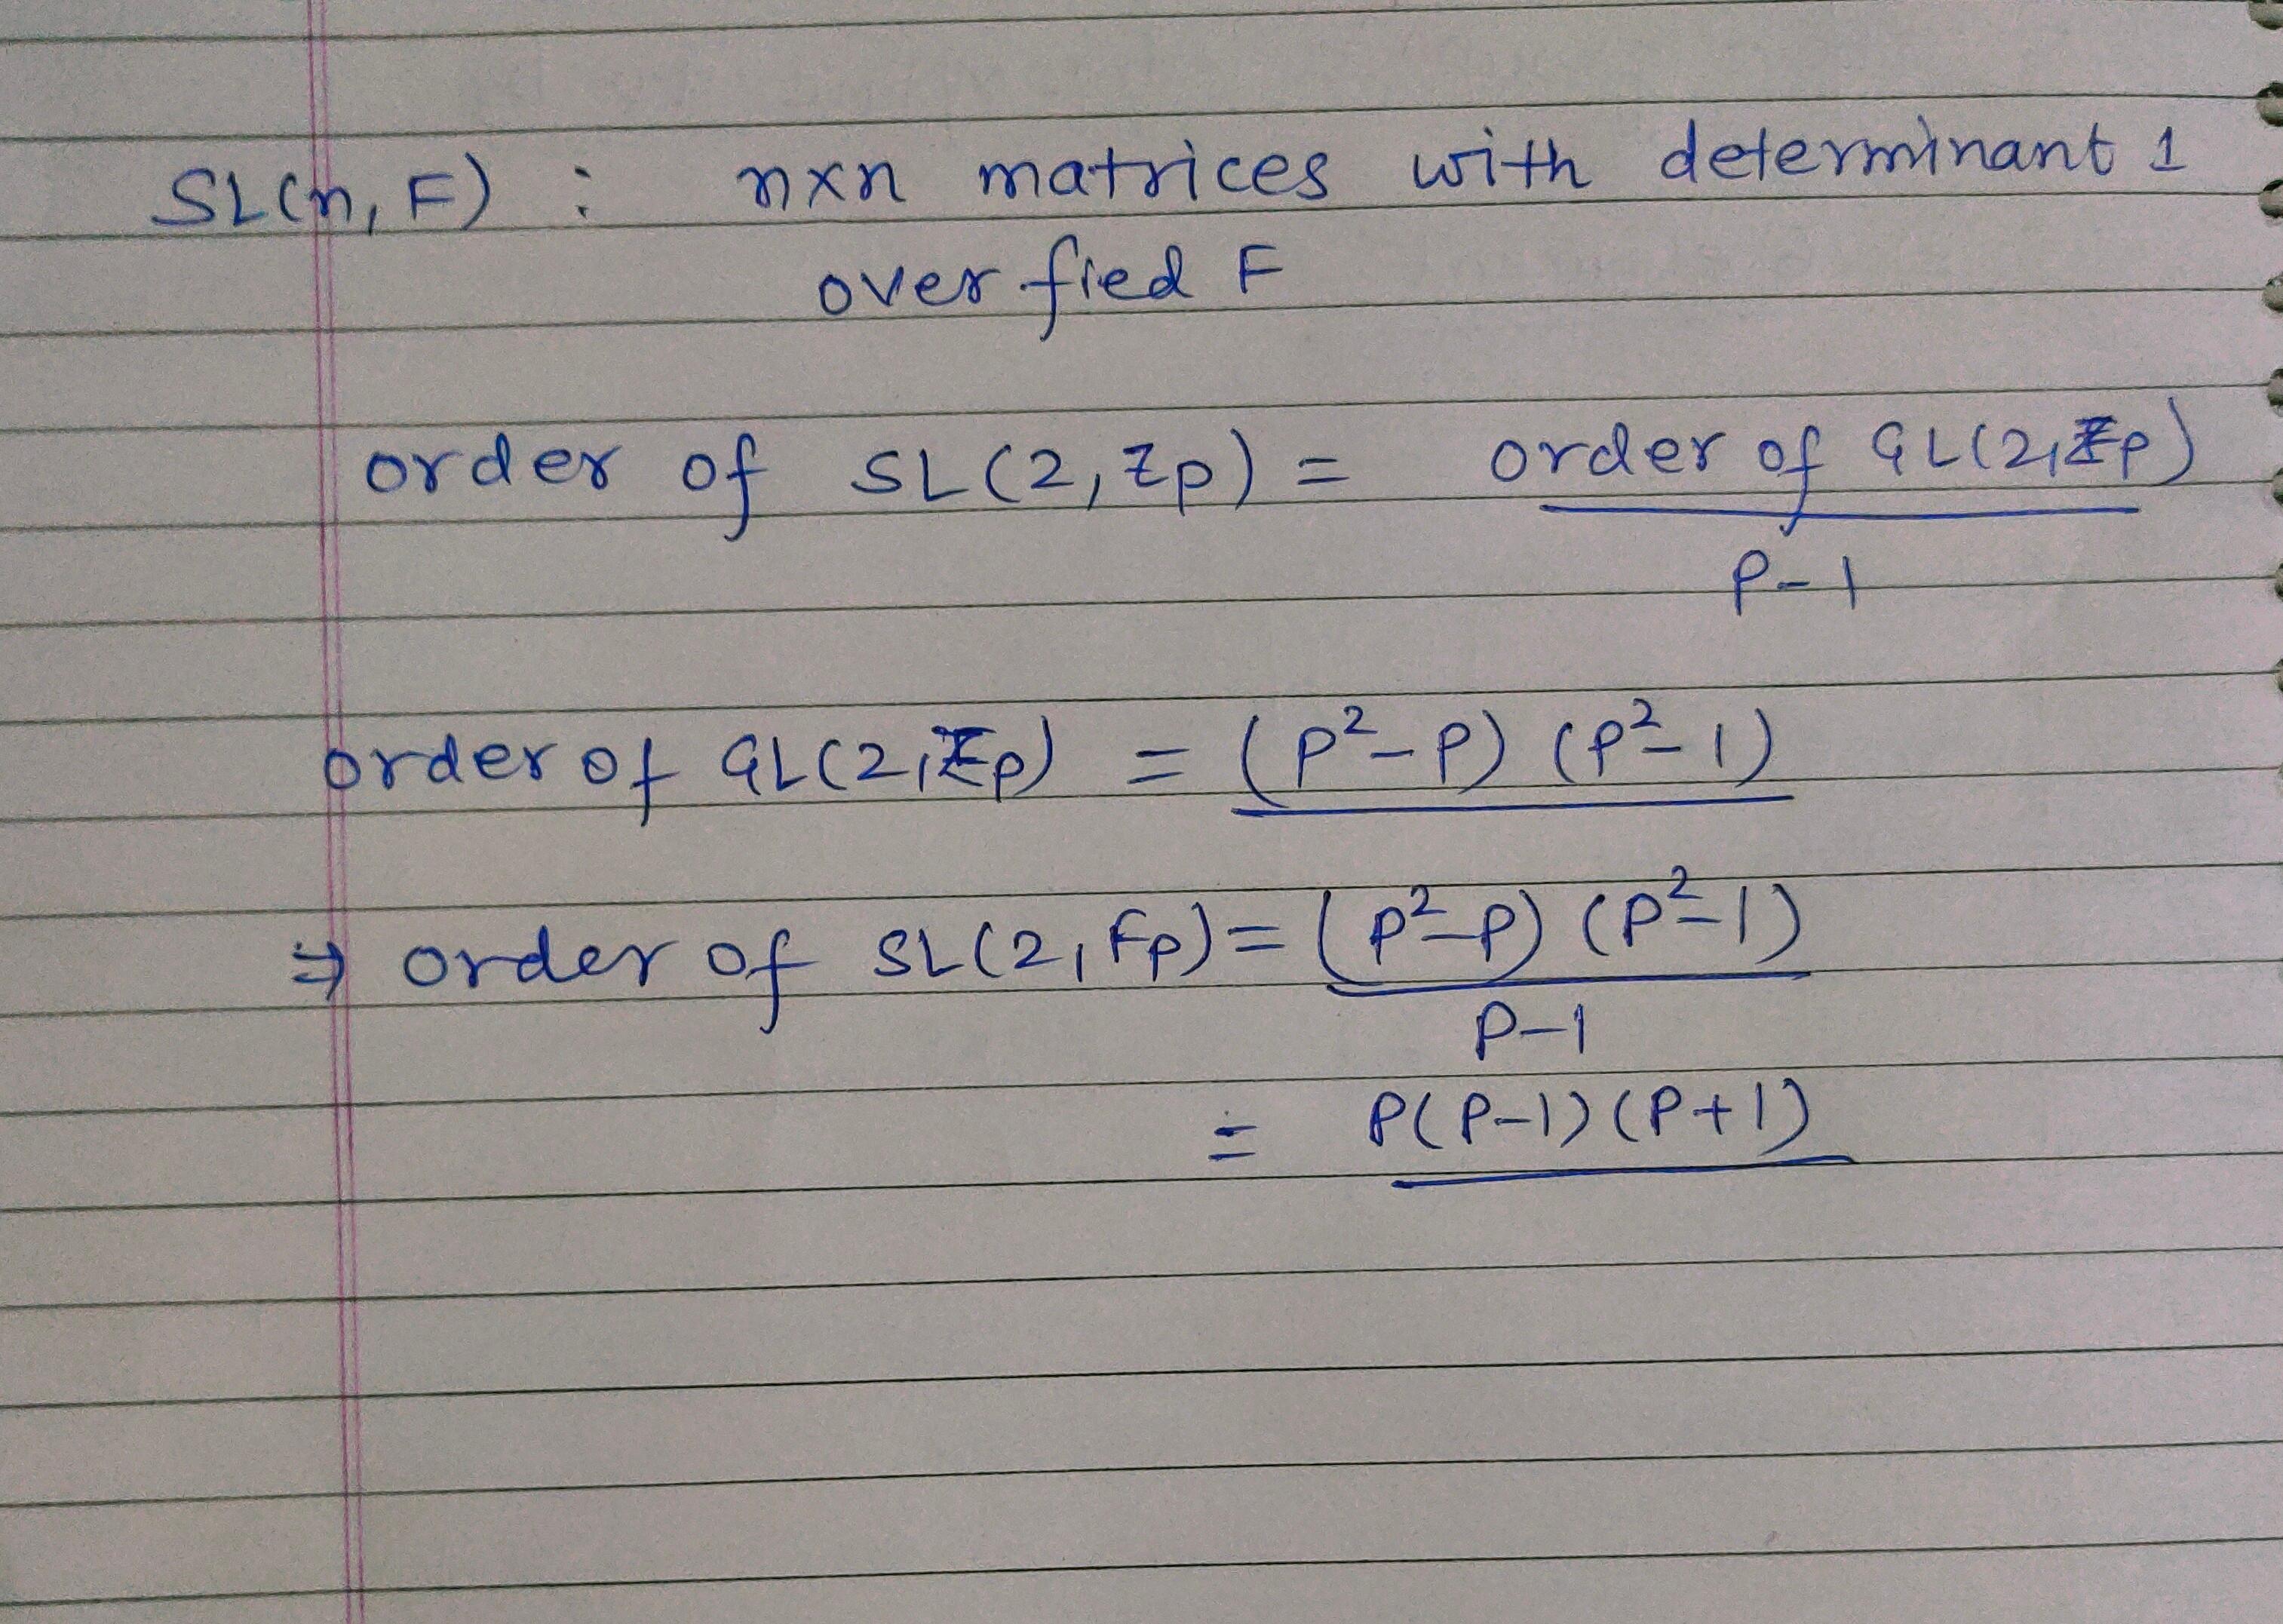 SL(n, F) : nxn matrices with determinant 1
over fied F
order of SL(2, Zp) = order of GL(2, Zp)
P-1
order of GL(2, Zp) = (p²-p) (p²-1)
⇒ order of SL(2, Fp) = (p²-p) (p²-1)
P-1
= P(P-1)(P+1)